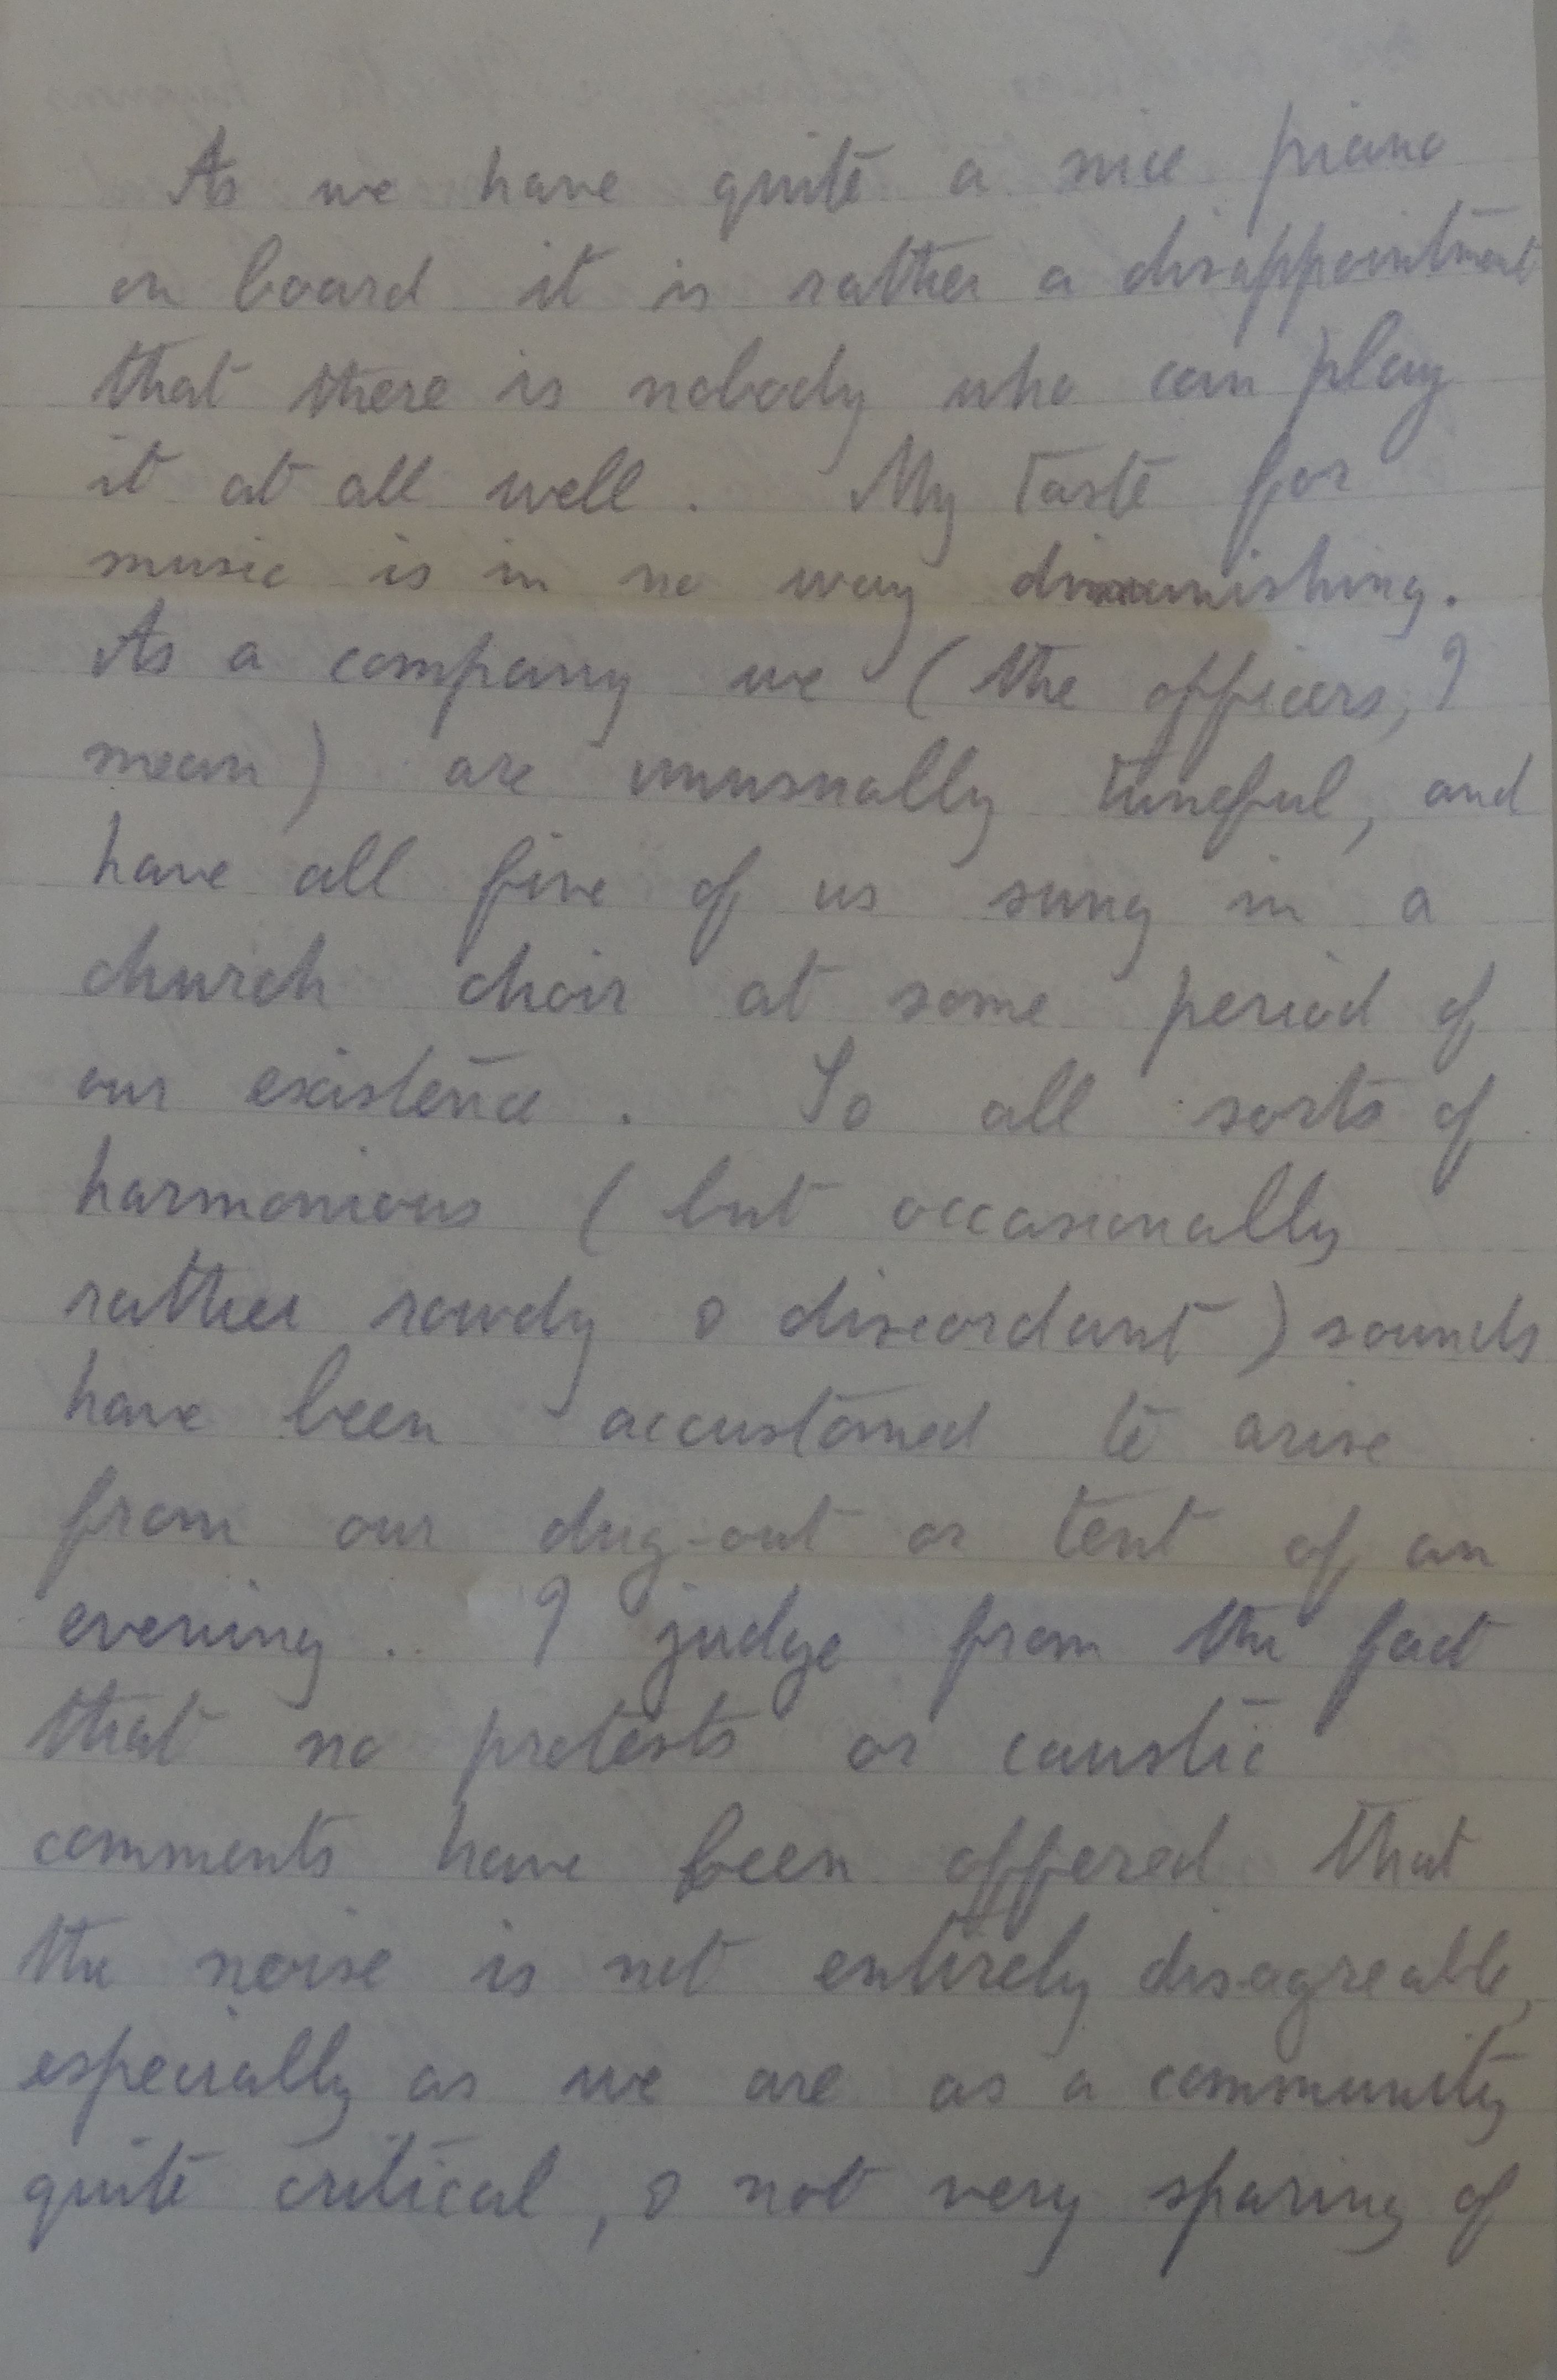 As we have quite a nice piano
on board it is rather a disappointment
that there is nobody who can play
it at all well. My taste for
music is in no way diminishing.
As a company we (the officers, I
mean) are unusually tuneful, and
have all five of us sung in a
church choir at some period of
our existence. So all sorts of
harmonious (but occasionally
rather rowdy & discordant) sounds
have been accustomed to arise
from our dug-out or tent of an
evening.. I judge from the fact
that no protests or caustic
comments have been offered that
the noise is not entirely disagreeable,
especially as we are as a community
quite critical, & not very sparing of